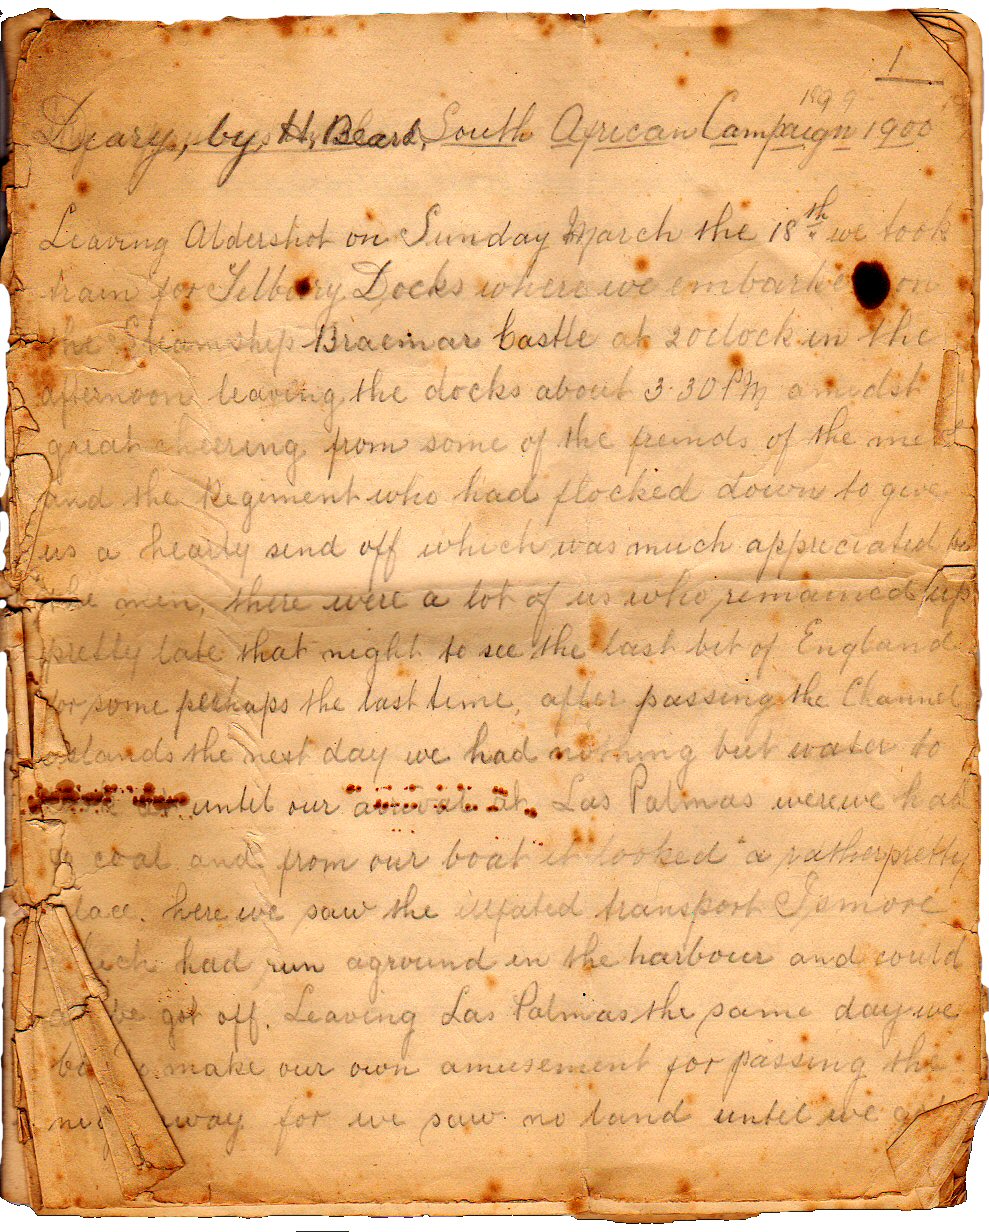 1
1899
Dyary, by, H, Beard, South African Campaign 1900
Leaving Aldershot on Sunday March the 18th we took
train for Tilbury Docks where we embarked on
the Steamship Braemar Castle at 2oclock in the
afternoon leaving the docks about 3.30 PM amidst
great cheering from some of the freinds of the men
and the Regiment who had flocked down to give
us a hearty send off which was much appreciated by
the men, there were a lot of us who remained up
pretty late that night to see the last bit of England
for some perhaps the last time, after passing the Channel
Islands the next day we had nothing but water to
until our arrival at Las Palmas were we had
to coal and from our boat it looked a rather pretty
place. here we saw the illfated transport Ismore
which had run aground in the harbour and could
be got off. Leaving Las Palmas the same day we
make our own amusement for passing the
way for we saw no land until we